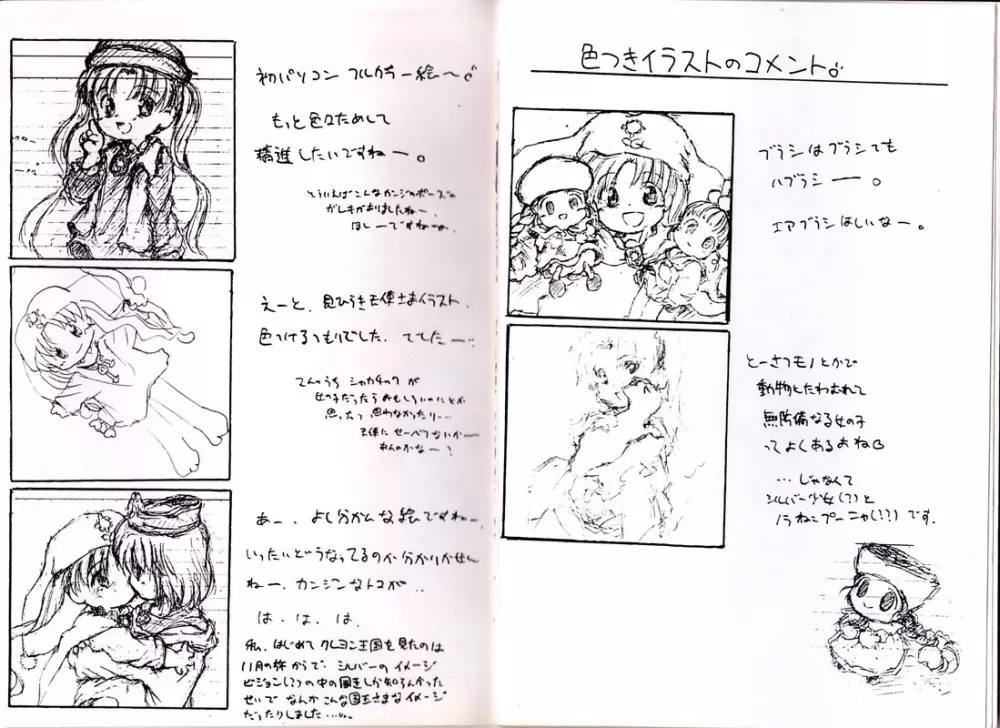 色つきイラストのコメント。
ブラシはブラシでも
ハブラシー。
エアブラシほしいなー。
とーさつモノとかで
動物とたわむれて
無防備なる女の子
ってよくあるおね
…じゃなくて
シルバー少女(?)と
ノラねこプーニャ(??)です。
初パソコンフルカラー絵〜
もっと色々ためして
精進したいですねー。
そういえばこんなカンジのポーズの
ガレキがありましたねー、
ほしーですねー。
えーと、見ひらき天使さまイラスト、
色つけるつもりでした、でしたー
シャカチック が
女の子だったらおもしろいのにとか
思ったり思わなかったり…
天使に せーべつないかー
あー、よく分かんな絵ですねー、
いったいどうなってるのか分かりません
ねー、カンジンなトコが
は、は、は、
私、はじめて クレヨン王国を見たのは
11月の終からで、シルバーのイメージ
ビジョン(?)の中の国王しか知らなかった
せいで なんか こんな国王さまなイメージ
だったりしました……